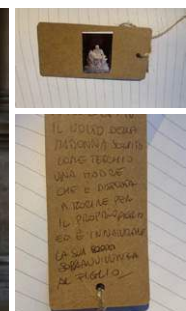 IL VOLTO DELLA
MADONNA
COME
UNA MADRE
CHE È DISPOSTA
A MORIRE PER
IL PROPRIO FIGLIO
ED È INNATURALE
LA SUA
SOPRAVVIVENZA
AL FIGLIO